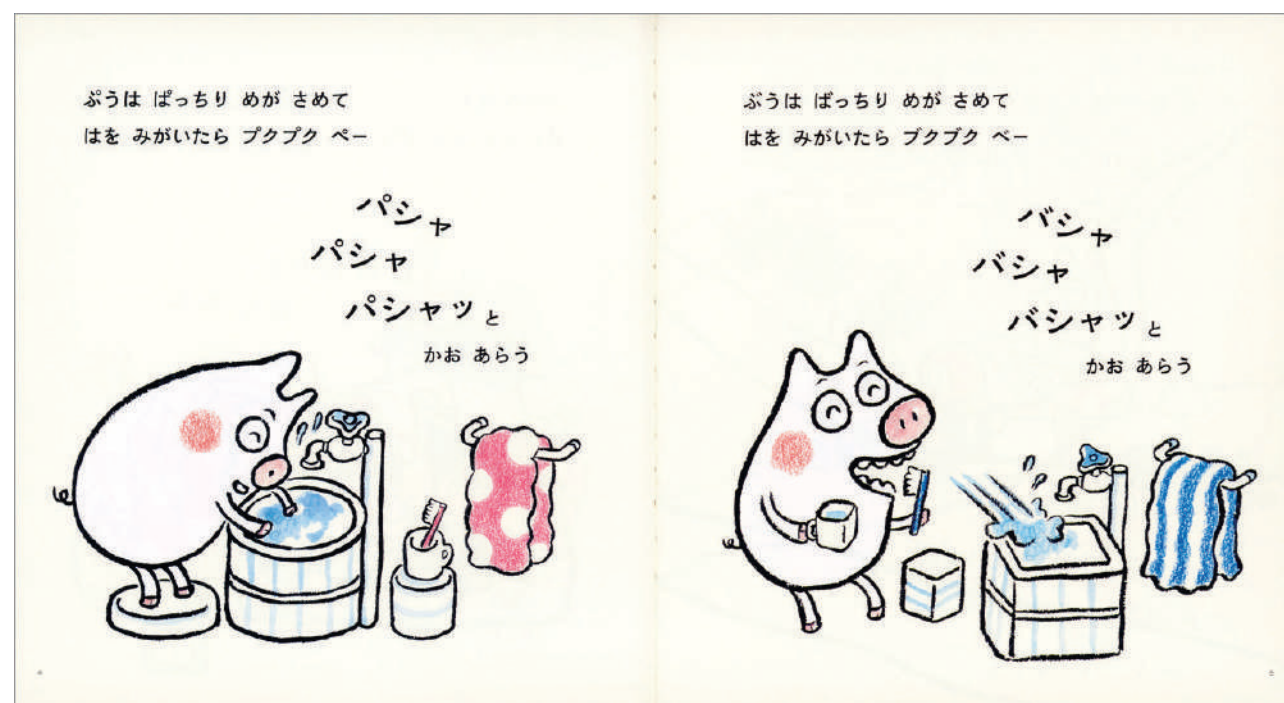 ぷうは ぱっちり めが さめて
はを みがいたら プクプク ペー
パシャ
パシャ
パシャッと
かお あらう
ぶうは ばっちり めが さめて
はを みがいたら ブクブク ベー
バシャ
バシャ
バシャッと
かお あらう